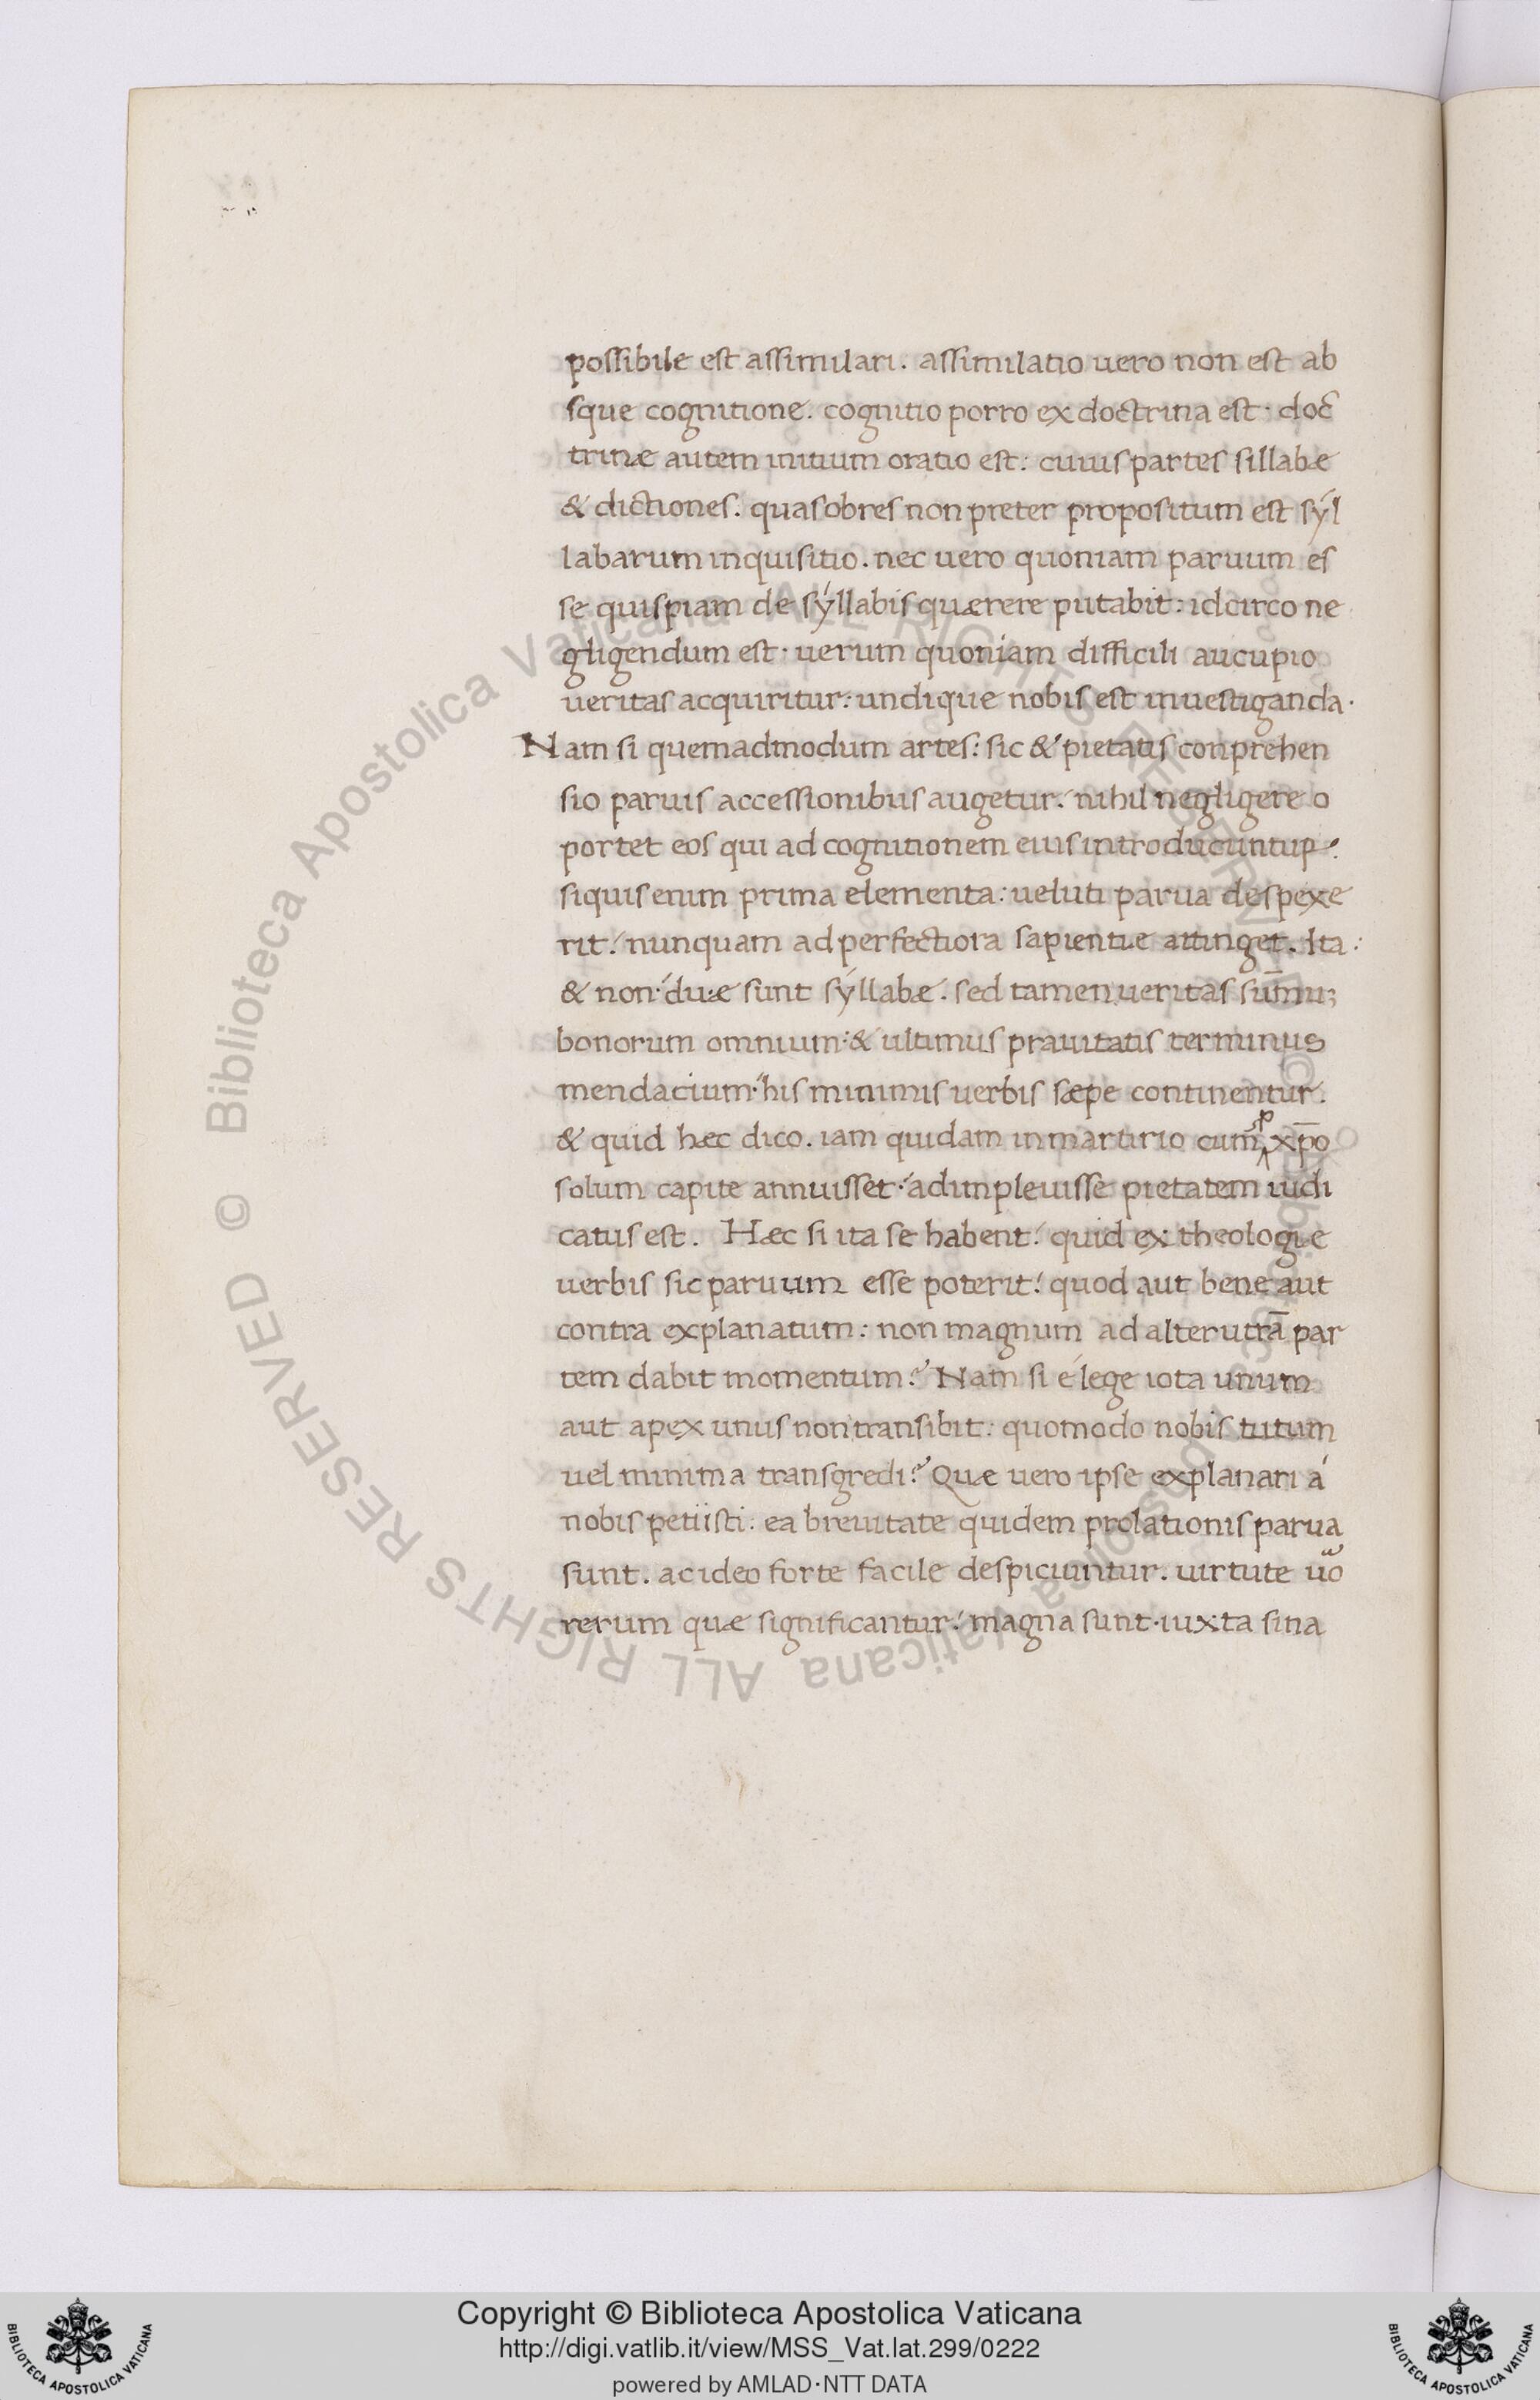 possibile est assimilari. assimilatio uero non est ab
sque cognitione. cognitio porro ex doctrina est· doc̄
trinæ autem initium oratio est: cuius partes sillabæ
& dictiones. quasobres non preter propositum est sýl
labarum inquisitio. nec uero quoniam paruum es
se quispiam de sýllabis quærere putabit: idcirco ne
gligendum est· uerum quoniam difficili aucupio
ueritas acquiritur: undique nobis est inuestiganda·
Nam si quemadmodum artes: sic & pietatis conprehen
sio paruis accessionibus augetur. nihil negligere o
portet eos qui ad cognitionem eius introducuntur.
siquis enim prima elementa: ueluti parua despexe
rit. nunquam ad perfectiora sapientiæ attinget. Ita:
& non· duæ sunt sýllabæ. sed tamen ueritas sūmus
bonorum omnium: & ultimus prauitatis terminus
mendacium· his minimis uerbis sæpe continentur.
& quid hæc dico. iam quidam in martirio cum p xp̄o
solum capite annuisset· adimpleuisse pietatem iudi
catus est. Hæc si ita se habent. quid ex theologiæ
uerbis sic paruum esse poterit. quod aut bene aut
contra explanatum: non magnum ad alterutrā par
tem dabit momentum? Nam si é lege iota unum
aut apex unus non transibit: quomodo nobis tutum
uel minima transgredi? Quæ uero ipse explanari á
nobis petiisti: ea breuitate quidem prolationis parua
sunt. ac ideo forte facile despiciuntur. uirtute uo
rerum quæ significantur. magna sunt· iuxta sina
© Biblioteca Apostolica Vaticana ALL RIGHTS RESERVED © Biblioteca Apostolica Vaticana ALL RIGHTS RESERVED
Copyright © Biblioteca Apostolica Vaticana
http://digi.vatlib.it/view/MSS_Vat.lat.299/0222
powered by AMLAD·NTT DATA
BIBLIOTECA APOSTOLICA VATICANA
BIBLIOTECA APOSTOLICA VATICANA